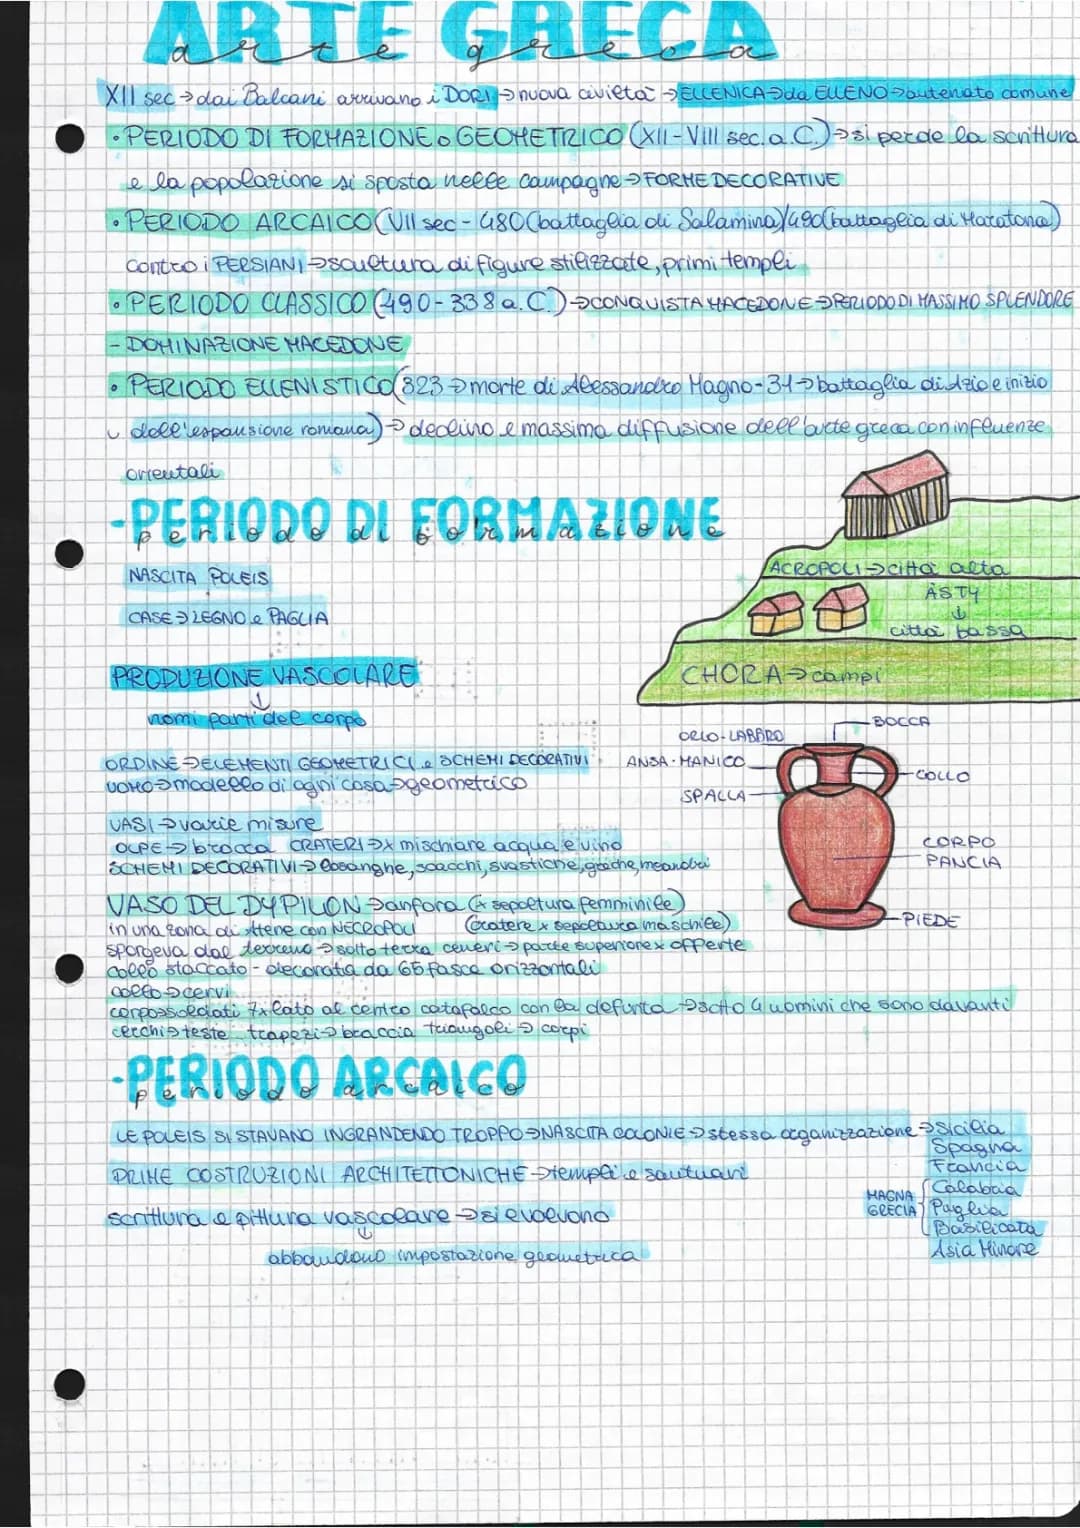 ARTE GRECA
arte greca
XII sec → dai Balcani arrivano i DORI → nuova civiltà → ELLENICA → da ELLENO → antenato comune
• PERIODO DI FORMAZIONE o GEOMETRICO (XII-VIII sec. a.C.) → si perde la scrittura
e la popolazione si sposta nelle campagne → FORME DECORATIVE
• PERIODO ARCAICO (VII sec - 480 (battaglia di Salamina)/490 (battaglia di Maratona)
contro i PERSIANI → scultura di figure stilizzate, primi templi
• PERIODO CLASSICO (490-338 a.C.) → CONQUISTA MACEDONE → PERIODO DI MASSIMO SPLENDORE
- DOMINAZIONE MACEDONE
• PERIODO ELLENISTICO (323 → morte di Alessandro Magno - 31 → battaglia di Azio e inizio
dell'espansione romana) → declino e massima diffusione dell'arte greca con influenze
orientali
- PERIODO DI FORMAZIONE
periodo di formazione
NASCITA POLEIS
CASE → LEGNO e PAGLIA
ACROPOLI → città alta
ASTY
↓
città bassa
CHORA → campi
PRODUZIONE VASCOLARE
↓
nomi parti del corpo
ORLO-LABBRO
BOCCA
ANSA-MANICO
COLLO
SPALLA
CORPO
PANCIA
PIEDE
ORDINE → ELEMENTI GEOMETRICI e SCHEMI DECORATIVI
UOMO → modello di ogni cosa → geometrico
VASI → varie misure
OLPE → brocca CRATERI → x mischiare acqua e vino
SCHEMI DECORATIVI → losanghe, scacchi, svastiche, greche, meandri
VASO DEL DYPILON → anfora (x sepoltura femminile)
in una zona di Atene con NECROPOLI (cratere x sepoltura maschile)
sporgeva dal terreno → sotto terra ceneri → parte superiore x offerte
collo staccato - decorata da 65 fasce orizzontali
collo → cervi
corpo → soldati 7 x lato al centro catafalco con la defunta → sotto 4 uomini che sono davanti
cerchi → teste trapezi → braccia triangoli → corpi
- PERIODO ARCAICO
periodo arcaico
LE POLEIS SI STAVANO INGRANDENDO TROPPO → NASCITA COLONIE → stessa organizzazione → Sicilia
Spagna
Francia
PRIME COSTRUZIONI ARCHITETTONICHE → templi e santuari
MAGNA GRECIA
Calabria
Puglia
Basilicata
Asia Minore
scrittura e pittura vascolare → si evolvono
↓
abbandono impostazione geometrica